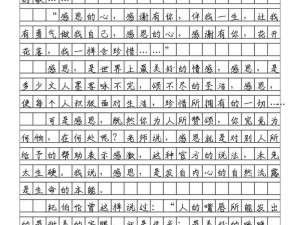 "感恩的心，感谢有你，伴我一生，让我
有勇气做我自己，感恩的心，感谢有你，花开
花落，我一样会珍惜……"
感恩，是世界上最美好的情感，感恩，是
多少文人墨客咏不完、颂不尽的圣洁。感恩，
使每个人积极面对生活，珍惜所拥有的一切……
可是感恩，既然你为人所赞颂，你究竟为
何物，在何处呢？老师说，感恩就是对别人所
给予的帮助表示感激，这种官方的说法，未免
太生硬。我说，感恩，是发自内心的自然流露
是生命的本能。
纪伯伦曾这样说过："人的嘴唇所能发出